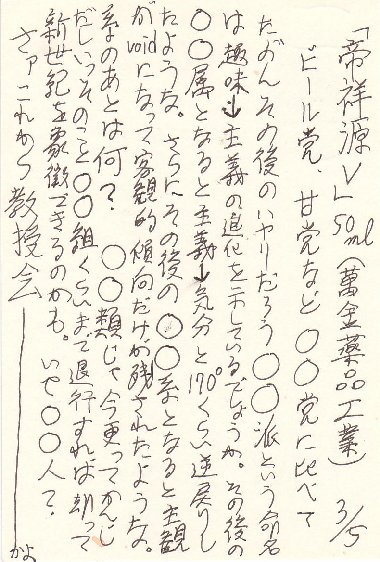 「帝祥源V」50ml(萬金薬品工業) 3/5
ビール党、甘党など ○○党に比べて
たぶんその後のハヤリだろう ○○派という命名
は趣味→主義の進化を示しているでしょうか。その後の
○○属となると主義→気分と170°くらい逆戻りし
たような。さらにその後の○○系となると主観
がvoidになって客観的傾向だけが残されたような。
系のあとは何? ○○類じゃ今更ってかんじ
だしいっそのこと○○組くらいまで退行すれば却って
新世紀を象徴できるのかも。 いや○○人?
さァこれから教授会――
かよ